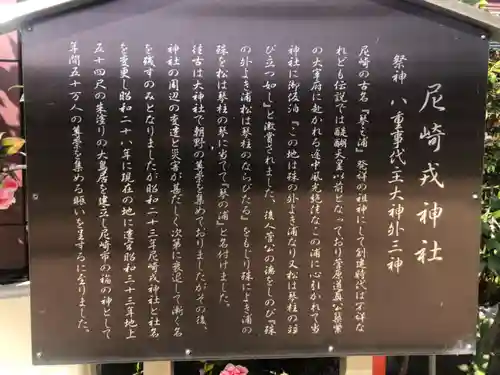 尼崎戎神社
祭神 八重事代主大神外三神
尼崎の古名『琴之浦』発祥の祖神にして創建時代は不詳な
れども伝説では醍醐天皇以前となっており菅原道真公築紫
の大宰府に赴かれる途中風光絶佳なこの浦に心引かれて当
神社に御仮泊『この地は殊の外よき浦なり又松は琴柱の如
び立つ如し』と激賞されました。後人菅公の徳をしのび『殊
の外よき浦松は琴柱のならびたる』をもじり殊によき浦の
殊を松は琴柱の琴に当てて『琴の浦』と名付けました。
往古は大神社で朝野の尊崇を集めておりましたがその後、
神社の周辺の変遷と災害の為だしく次第に衰退して漸く名
を残すのみとなりましたが昭和二十三年尼崎戎神社と社名
を変更し昭和二十八年に現在の地に遷宮昭和三十三年地上
五十四尺の朱塗りの大鳥居を建立し尼崎市の福の神として
年間五十万人の尊崇を集める賑いを呈するに至りました。